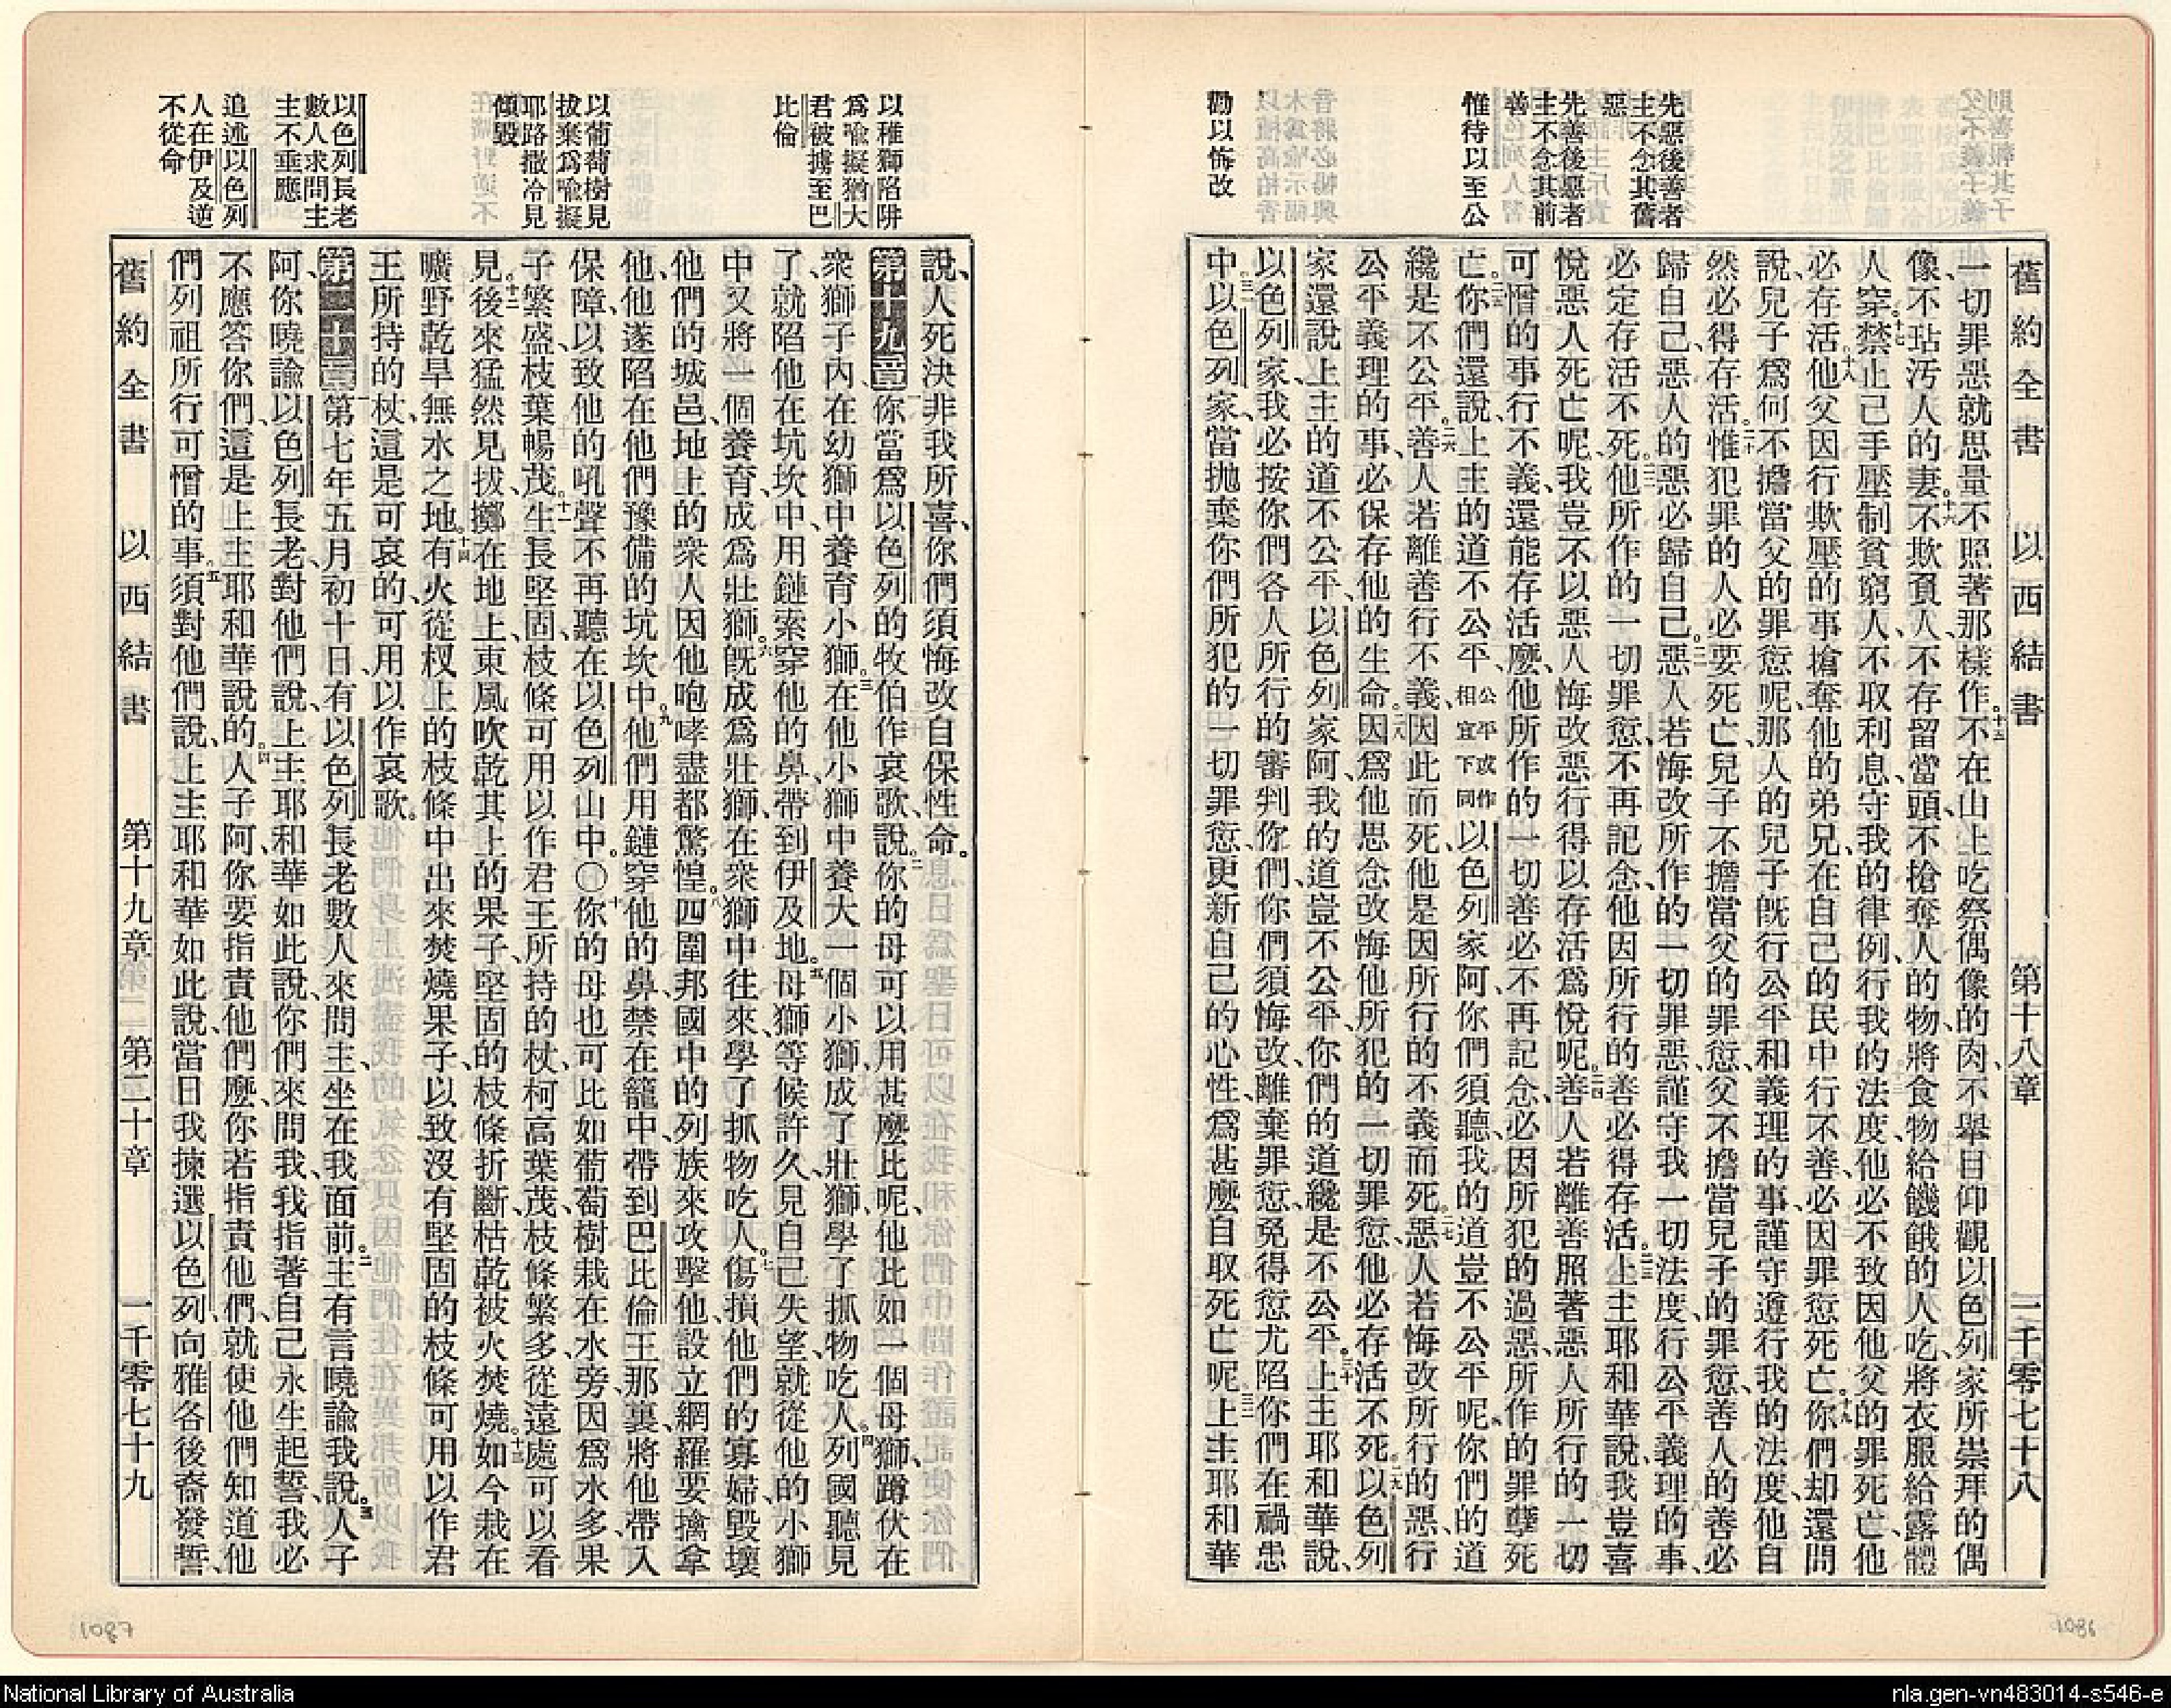 舊約全書 以西結書 第十八章 一千零七十八
先惡後善者
主不念其舊
惡
先善後惡者
主不念其前
善
惟待以至公
勸以悔改
一切罪惡就思量不照著那樣作、十五不在山上吃祭偶像的肉、不舉目仰觀以色列家所崇拜的偶
像、不玷汚人的妻、十六不欺負人、不存留當頭、不搶奪人的物、將食物給饑餓的人吃、將衣服給露體
人穿、十七禁止己手壓制貧窮人、不取利息、守我的律例、行我的法度、他必不致因他父的罪死亡、他
必存活。十八他父因行欺壓的事、搶奪他的弟兄、在自己的民中行不善、必因罪愆死亡。十九你們却還問
說、兒子爲何不擔當父的罪愆呢、那人的兒子旣行公平和義理的事、謹守遵行我的法度、他自
然必得存活。二十惟犯罪的人必要死亡、兒子不擔當父的罪愆、父不擔當兒子的罪愆、善人的善必
歸自己、惡人的惡必歸自己。二一惡人若悔改所作的一切罪惡、謹守我一切法度、行公平義理的事、
必定存活不死。二二他所作的一切罪愆不再記念、他因所行的善必得存活。二三上主耶和華說、我豈喜
悅惡人死亡呢、我豈不以惡人悔改惡行得以存活爲悅呢。二四善人若離善照著惡人所行的一切
可憎的事行不義、還能存活麼、他所作的一切善必不再記念、必因所犯的過惡、所作的罪孽死
亡。二五你們還說、上主的道不公平、公平或作相宜下同以色列家阿、你們須聽、我的道豈不公平呢、你們的道
纔是不公平。二六善人若離善行不義、因此而死、他是因所行的不義而死。二七惡人若悔改所行的惡行
公平義理的事、必保存他的生命。二八因爲他思念改悔他所犯的一切罪愆、他必存活不死。二九以色列
家還說、上主的道不公平、以色列家阿、我的道豈不公平、你們的道纔是不公平。三十上主耶和華說、
以色列家、我必按你們各人所行的審判你們、你們須悔改、離棄罪愆、免得愆尤陷你們在禍患
中。三一以色列家、當抛棄你們所犯的一切罪愆、更新自己的心性、爲甚麼自取死亡呢。三二上主耶和華
1086
以稚獅陷阱
爲喩擬猶大
君被擄至巴
比倫
以葡萄樹見
拔棄爲喩擬
耶路撒冷見
傾毀
以色列長老
數人求問主
主不垂應
追述以色列
人在伊及逆
不從命
說、人死決非我所喜、你們須悔改自保性命。
第十九章一你當爲以色列的牧伯作哀歌、說、二你的母可以用甚麼比呢、他比如一個母獅、蹲伏在
衆獅子內、在幼獅中養育小獅。三在他小獅中養大一個小獅、成了壯獅、學了抓物吃人。四列國聽見
了、就陷他在坑坎中、用鏈索穿他的鼻、帶到伊及地。五母獅等候許久、見自己失望、就從他的小獅
中又將一個養育、成爲壯獅。六旣成爲壯獅、在衆獅中往來、學了抓物吃人。七傷損他們的寡婦、毀壞
他們的城邑、地上的衆人、因他咆哮盡都驚惶。八四圍邦國中的列族來攻擊他、設立網羅要擒拿
他、他遂陷在他們豫備的坑坎中。九他們用鏈穿他的鼻、禁在籠中、帶到巴比倫王那裏、將他帶入
保障、以致他的吼聲不再聽在以色列山中。〇十你的母也可比如葡萄樹、栽在水旁、因爲水多、果
子繁盛、枝葉暢茂。十一生長堅固、枝條可用以作君王所持的杖、柯高葉茂、枝條繁多、從遠處可以看
見。十二後來猛然見拔、擲在地上、東風吹乾其上的果子、堅固的枝條折斷枯乾、被火焚燒。十三如今栽在
曠野乾旱無水之地。十四有火從杈上的枝條中出來、焚燒果子、以致沒有堅固的枝條可用以作君
王所持的杖、這是可哀的、可用以作哀歌。
第二十章一第七年五月初十日、有以色列長老數人來問主、坐在我面前。二主有言曉諭我說、三人子
阿、你曉諭以色列長老、對他們說、上主耶和華如此說、你們來問我、我指著自己永生起誓、我必
不應答你們、這是上主耶和華說的。四人子阿、你要指責他們麼、你若指責他們、就使他們知道他
們列祖所行可憎的事。五須對他們說、上主耶和華如此說、當日我揀選以色列、向雅各後裔發誓、
舊約全書 以西結書 第十九章 第二十章 一千零七十九
1087
National Library of Australia
nla.gen-vn483014-s546-e